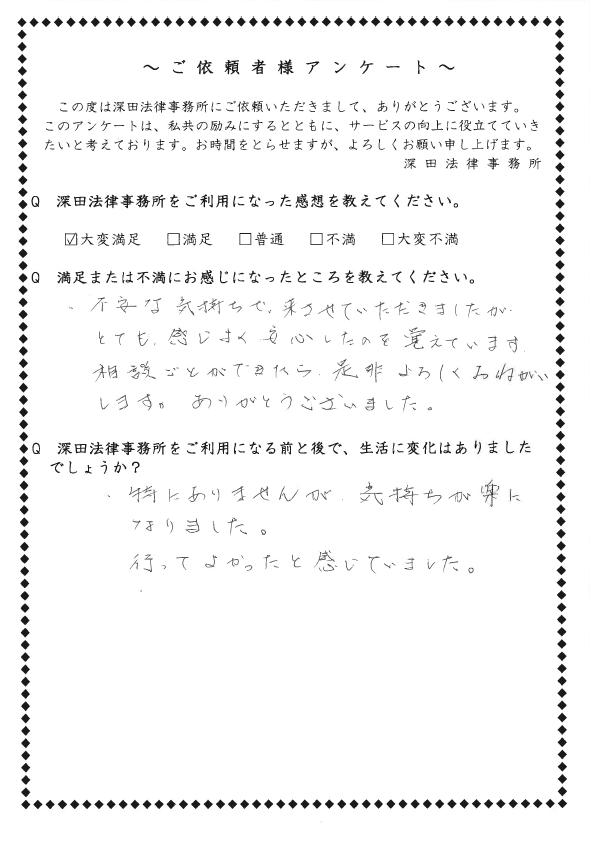 ～ご依頼者様アンケート～
この度は深田法律事務所にご依頼いただきまして、ありがとうございます。
このアンケートは、私共の励みにするとともに、サービスの向上に役立てていき
たいと考えております。お時間をとらせますが、よろしくお願い申し上げます。
深田法律事務所
Q 深田法律事務所をご利用になった感想を教えてください。
☑大変満足 □満足 □普通 □不満 □大変不満
Q 満足または不満にお感じになったところを教えてください。
・不安な気持ちで、来させていただきましたが
とても、感じよく安心したのを覚えています
相談ごとができたら、是非よろしくおねがい
します。ありがとうございました。
Q 深田法律事務所をご利用になる前と後で、生活に変化はありました
でしょうか？
・特にありませんが、気持ちが楽に
なりました。
行ってよかったと感じていました。